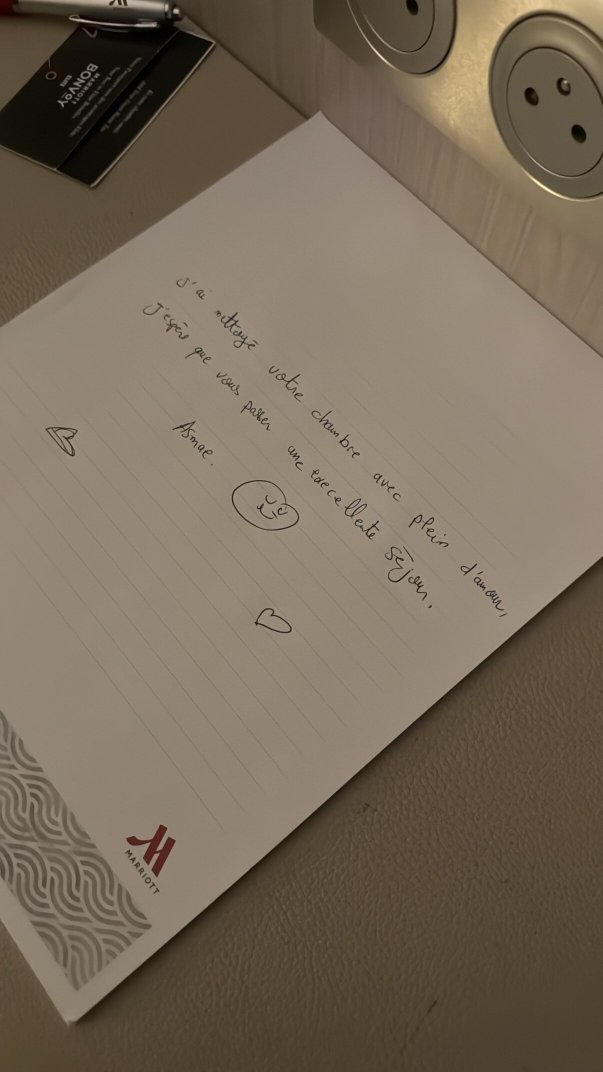 J'ai nettoyé votre chambre avec plein d'amour,
J'espère que vous passer une excellente séjour.
Asmae.
MARRIOTT
MARRIOTT
BONVOY